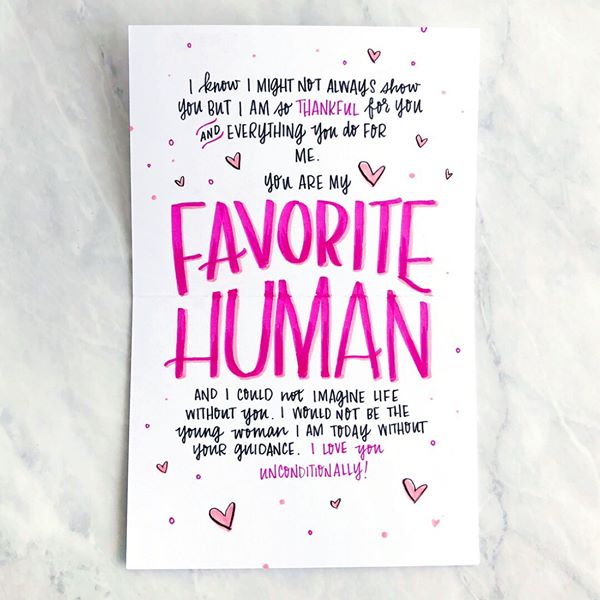 I know I MIGHT NOT ALWAYS show
you BUT I AM so THANKFUL for you
AND EVERYTHING you do FOR
ME.
you ARE MY
FAVORITE
HUMAN
AND I COULD not IMAGINE LIFE
WITHOUT you. I WOULD NOT BE THE
young woman I AM TODAY WITHOUT
your GUIDANCE. I LOVE you
UNCONDITIONALLY!